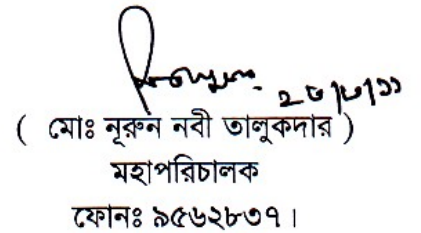 ২৮/৮/১১
( মোঃ নূরুন নবী তালুকদার )
মহাপরিচালক
ফোনঃ ৯৫৬২৮৩৭।